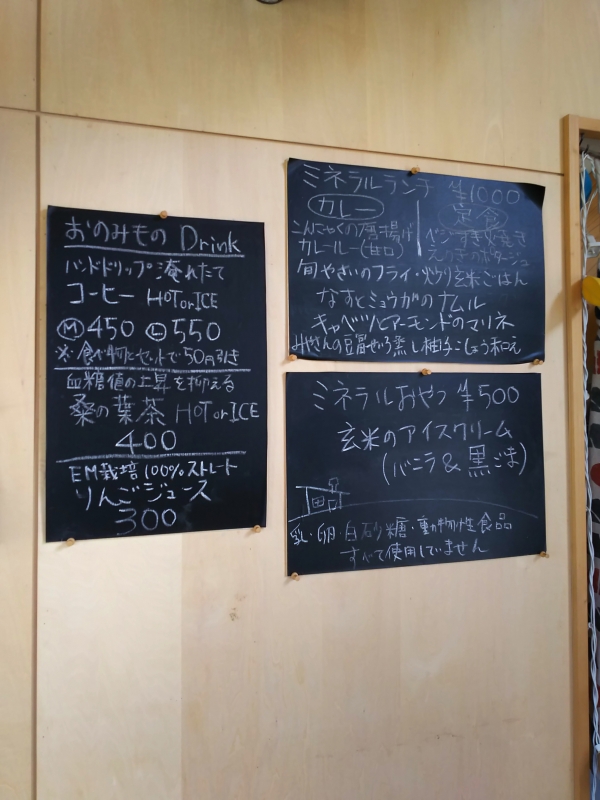 おのみもの Drink
ハンドドリップ 淹れたて
コーヒー HOT or ICE
Ⓜ450 Ⓛ550
※食べ物とセットで50円引き
血糖値の上昇を抑える
桑の葉茶 HOT or ICE
400
EM栽培 100%ストレート
りんごジュース
300
ミネラルランチ ¥1000
カレー
こんにゃくの唐揚げ
カレールー(甘口)
定食
ベジすき焼き
えのきのポタージュ
旬やさいのフライ・炒り玄米ごはん
なすとミョウガのナムル
キャベツとアーモンドのマリネ
みやさんの豆腐せいろ蒸し柚子こしょう和え
ミネラルおやつ ¥500
玄米のアイスクリーム
(バニラ & 黒ごま)
乳・卵・白砂糖・動物性食品
すべて使用していません